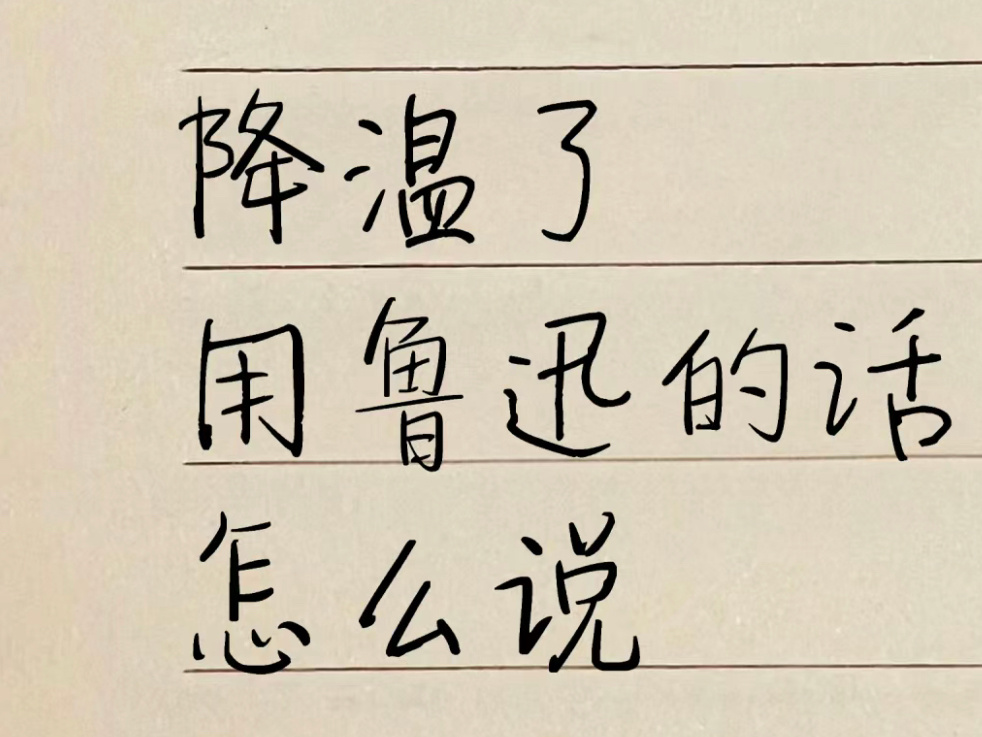 降温了
用鲁迅的话
怎么说